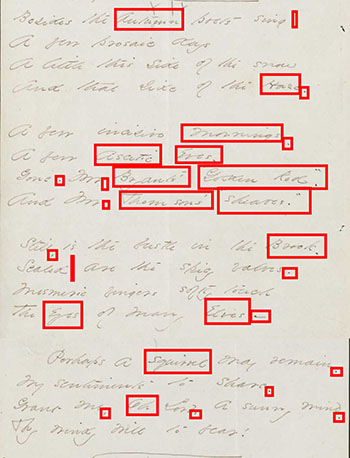 Besides the Autumn Poets sing
A few prosaic days
A little this side of the snow
And that side of the Haze -
A few incisive Mornings -
A few Ascetic Eves -
Gone - Mr Bryant's "Golden Rod" -
And Mr Thomson's "sheaves."
Still - is the bustle in the Brook -
Sealed are the spicy valves -
Mesmeric fingers softly touch
The Eyes of many Elves -
Perhaps a Squirrel may remain -
My sentiments to share -
Grant me - Oh Lord - a sunny mind -
Thy windy will to bear!